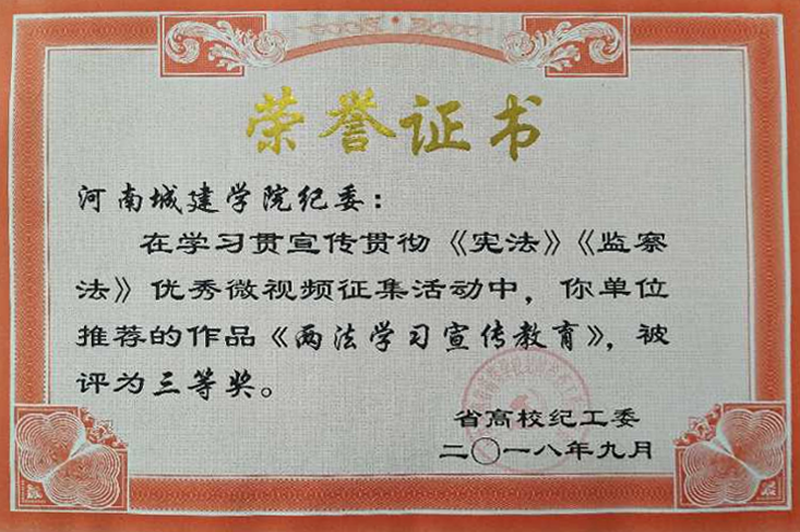 荣誉证书
河南城建学院纪委：
在学习贯宣传贯彻《宪法》《监察
法》优秀微视频征集活动中，你单位
推荐的作品《两法学习宣传教育》，被
评为三等奖。
省高校纪工委
二〇一八年九月